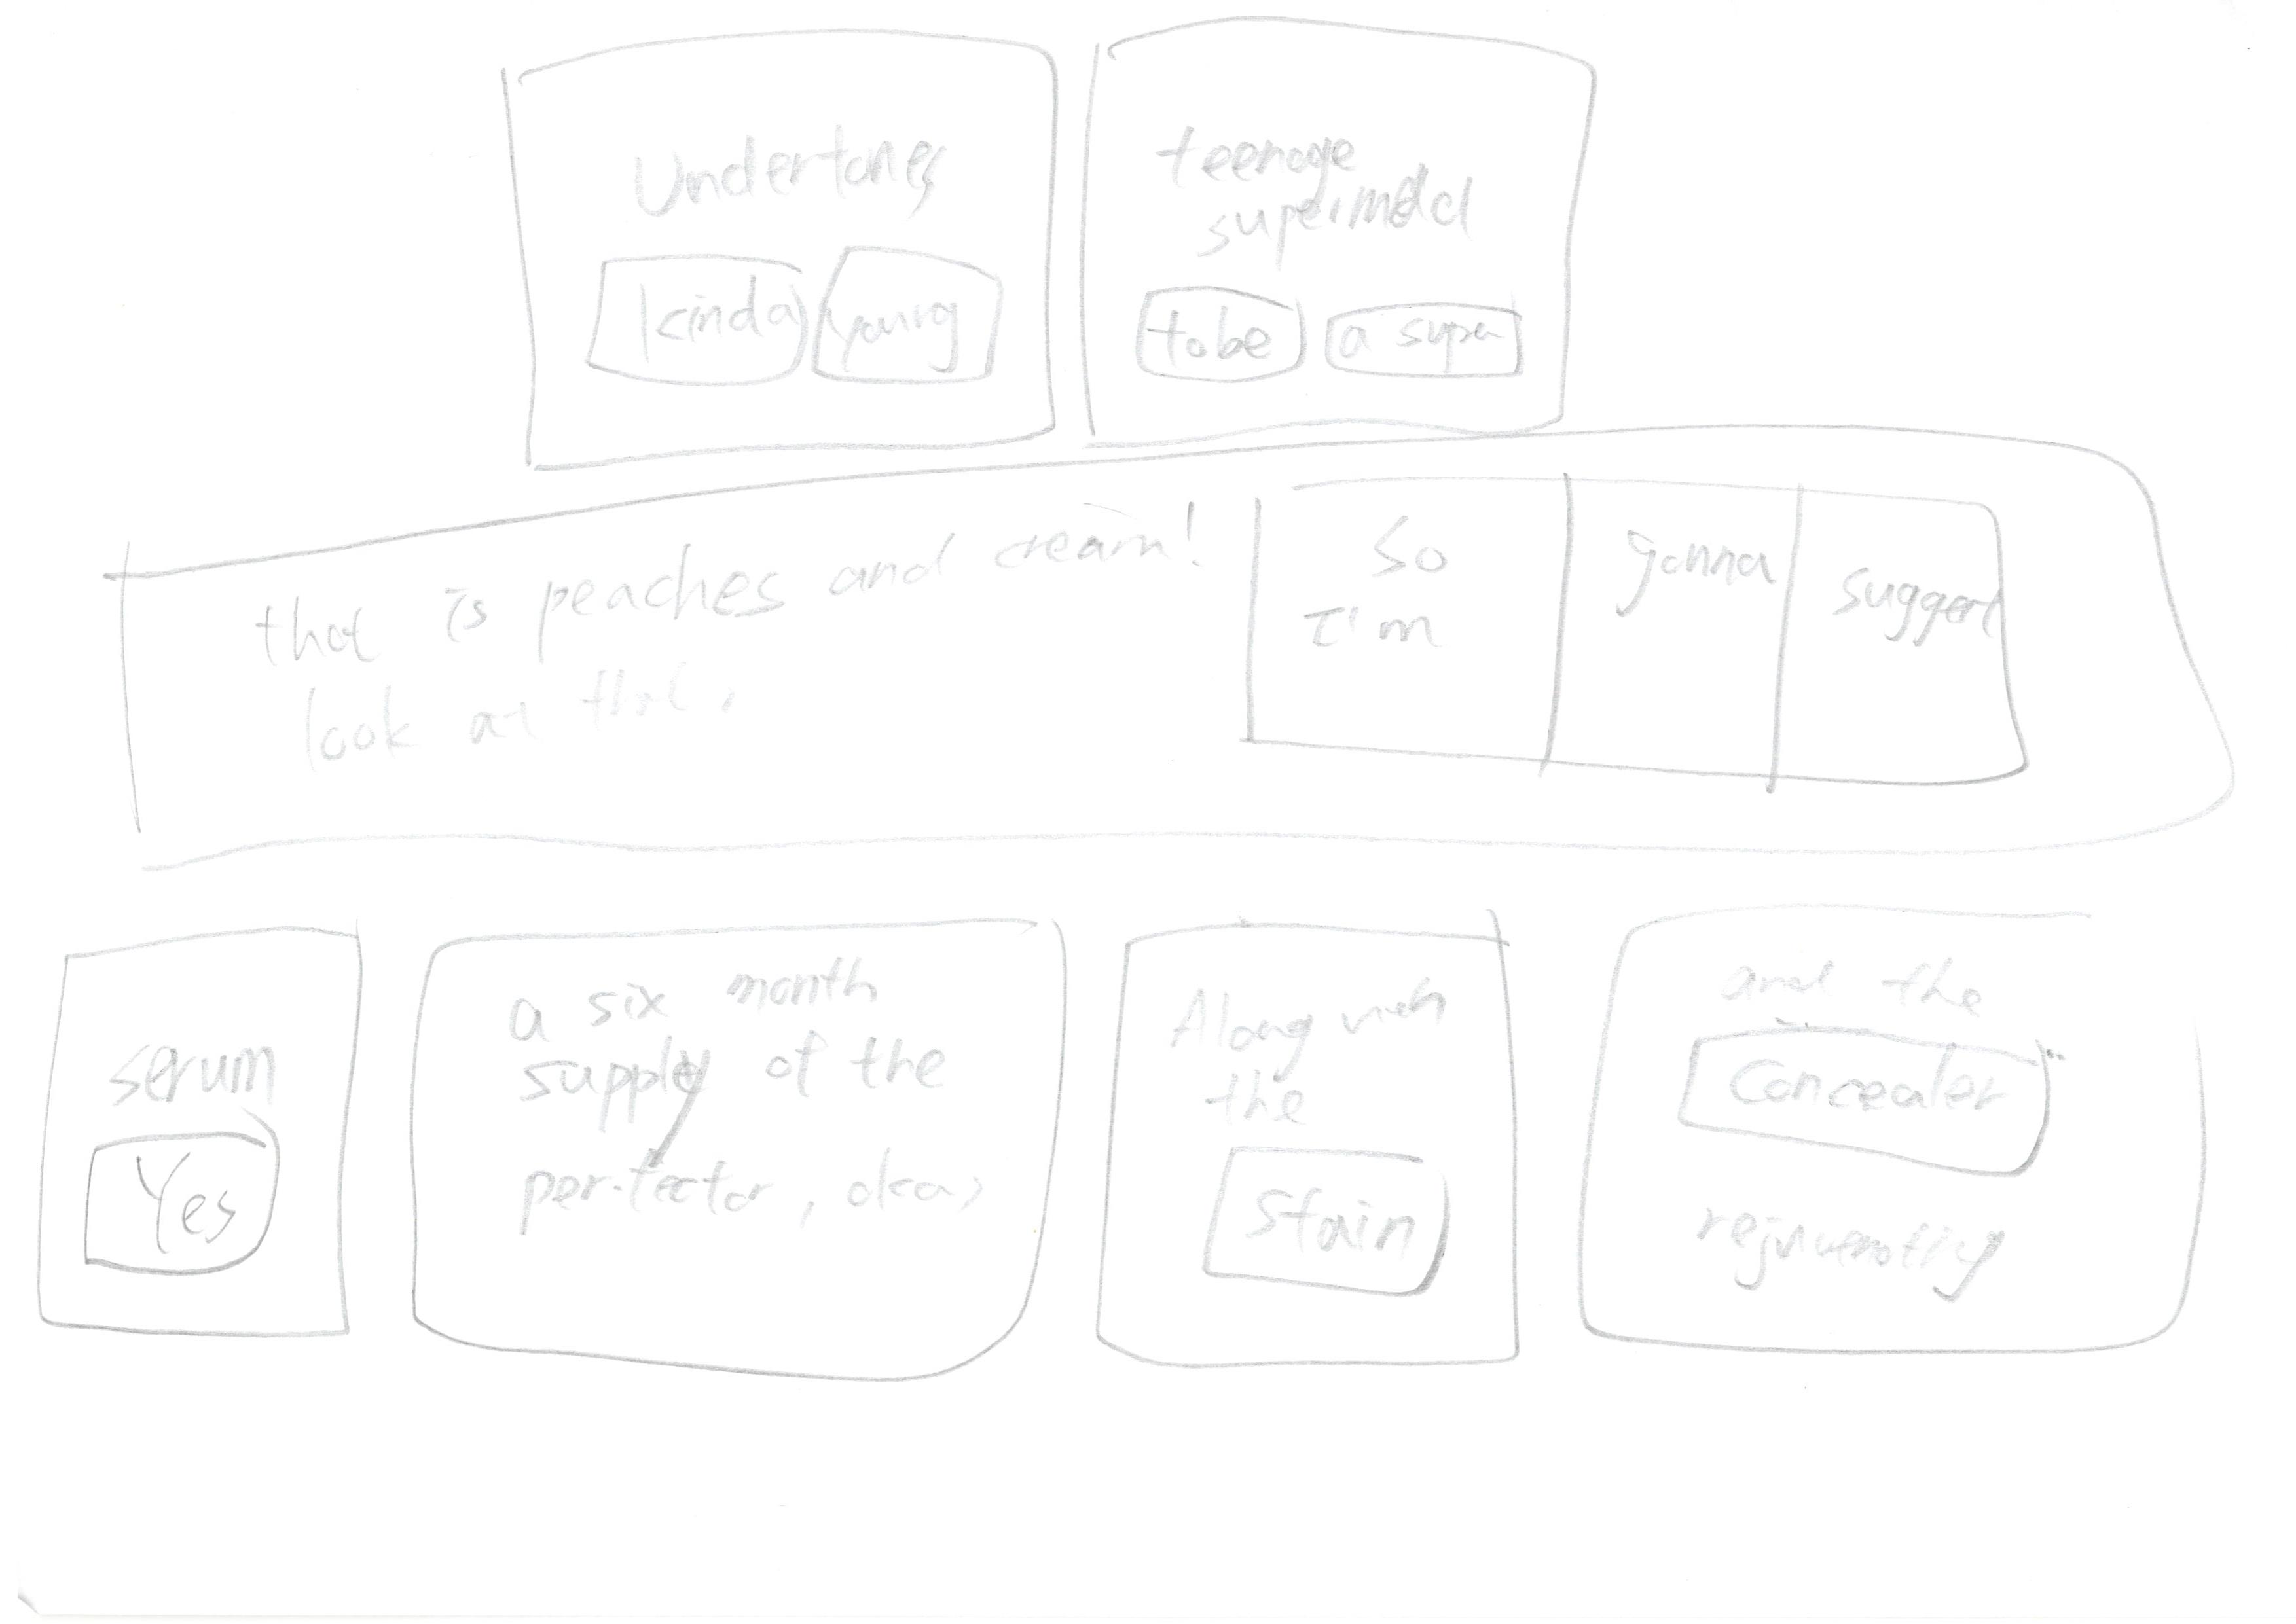 Undertones
kinda young
teenage
supermodel
to be a super
that is peaches and cream!
look at that,
So
I'm
gonna
suggest
serum
Yes
a six month
supply of the
per-fector, okay
Along with
the
Stain
and the
Concealer
rejuvenating